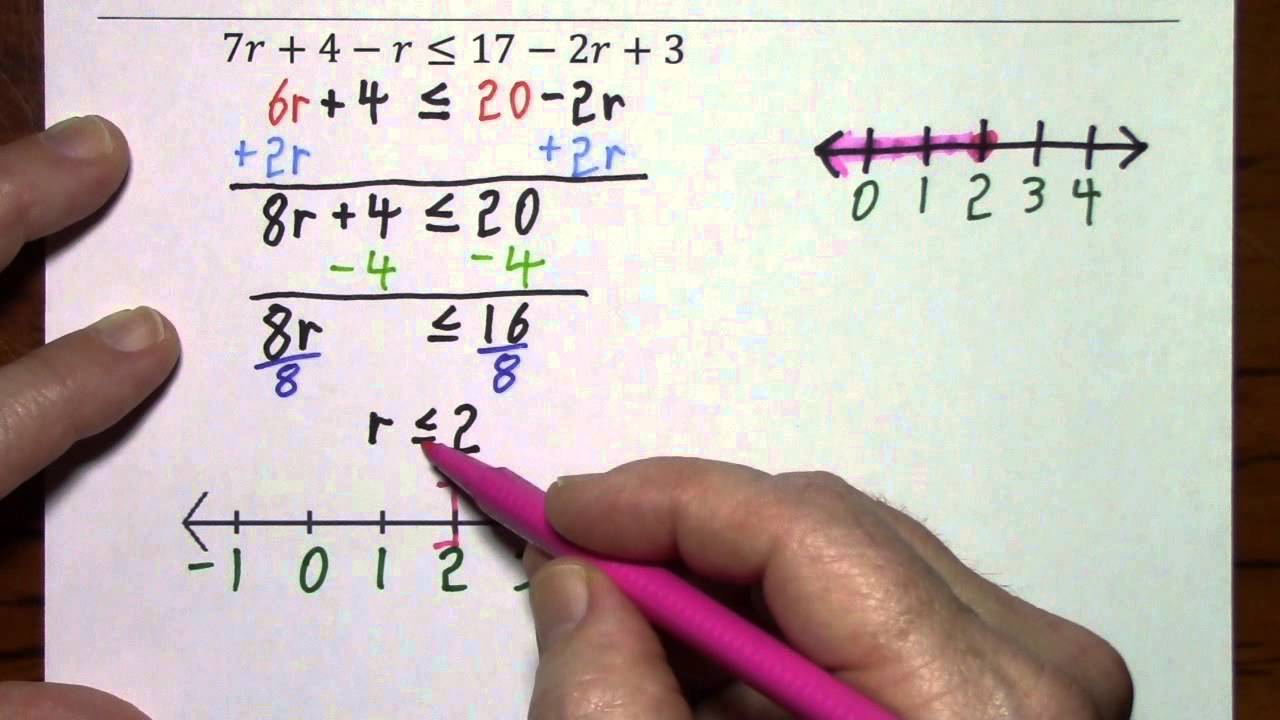 7r + 4 − r ≤ 17 − 2r + 3
6r + 4 ≤ 20 - 2r
+2r +2r
8r + 4 ≤ 20
-4 -4
8r ≤ 16
8 8
r ≤ 2
-1 0 1 2
0 1 2 3 4